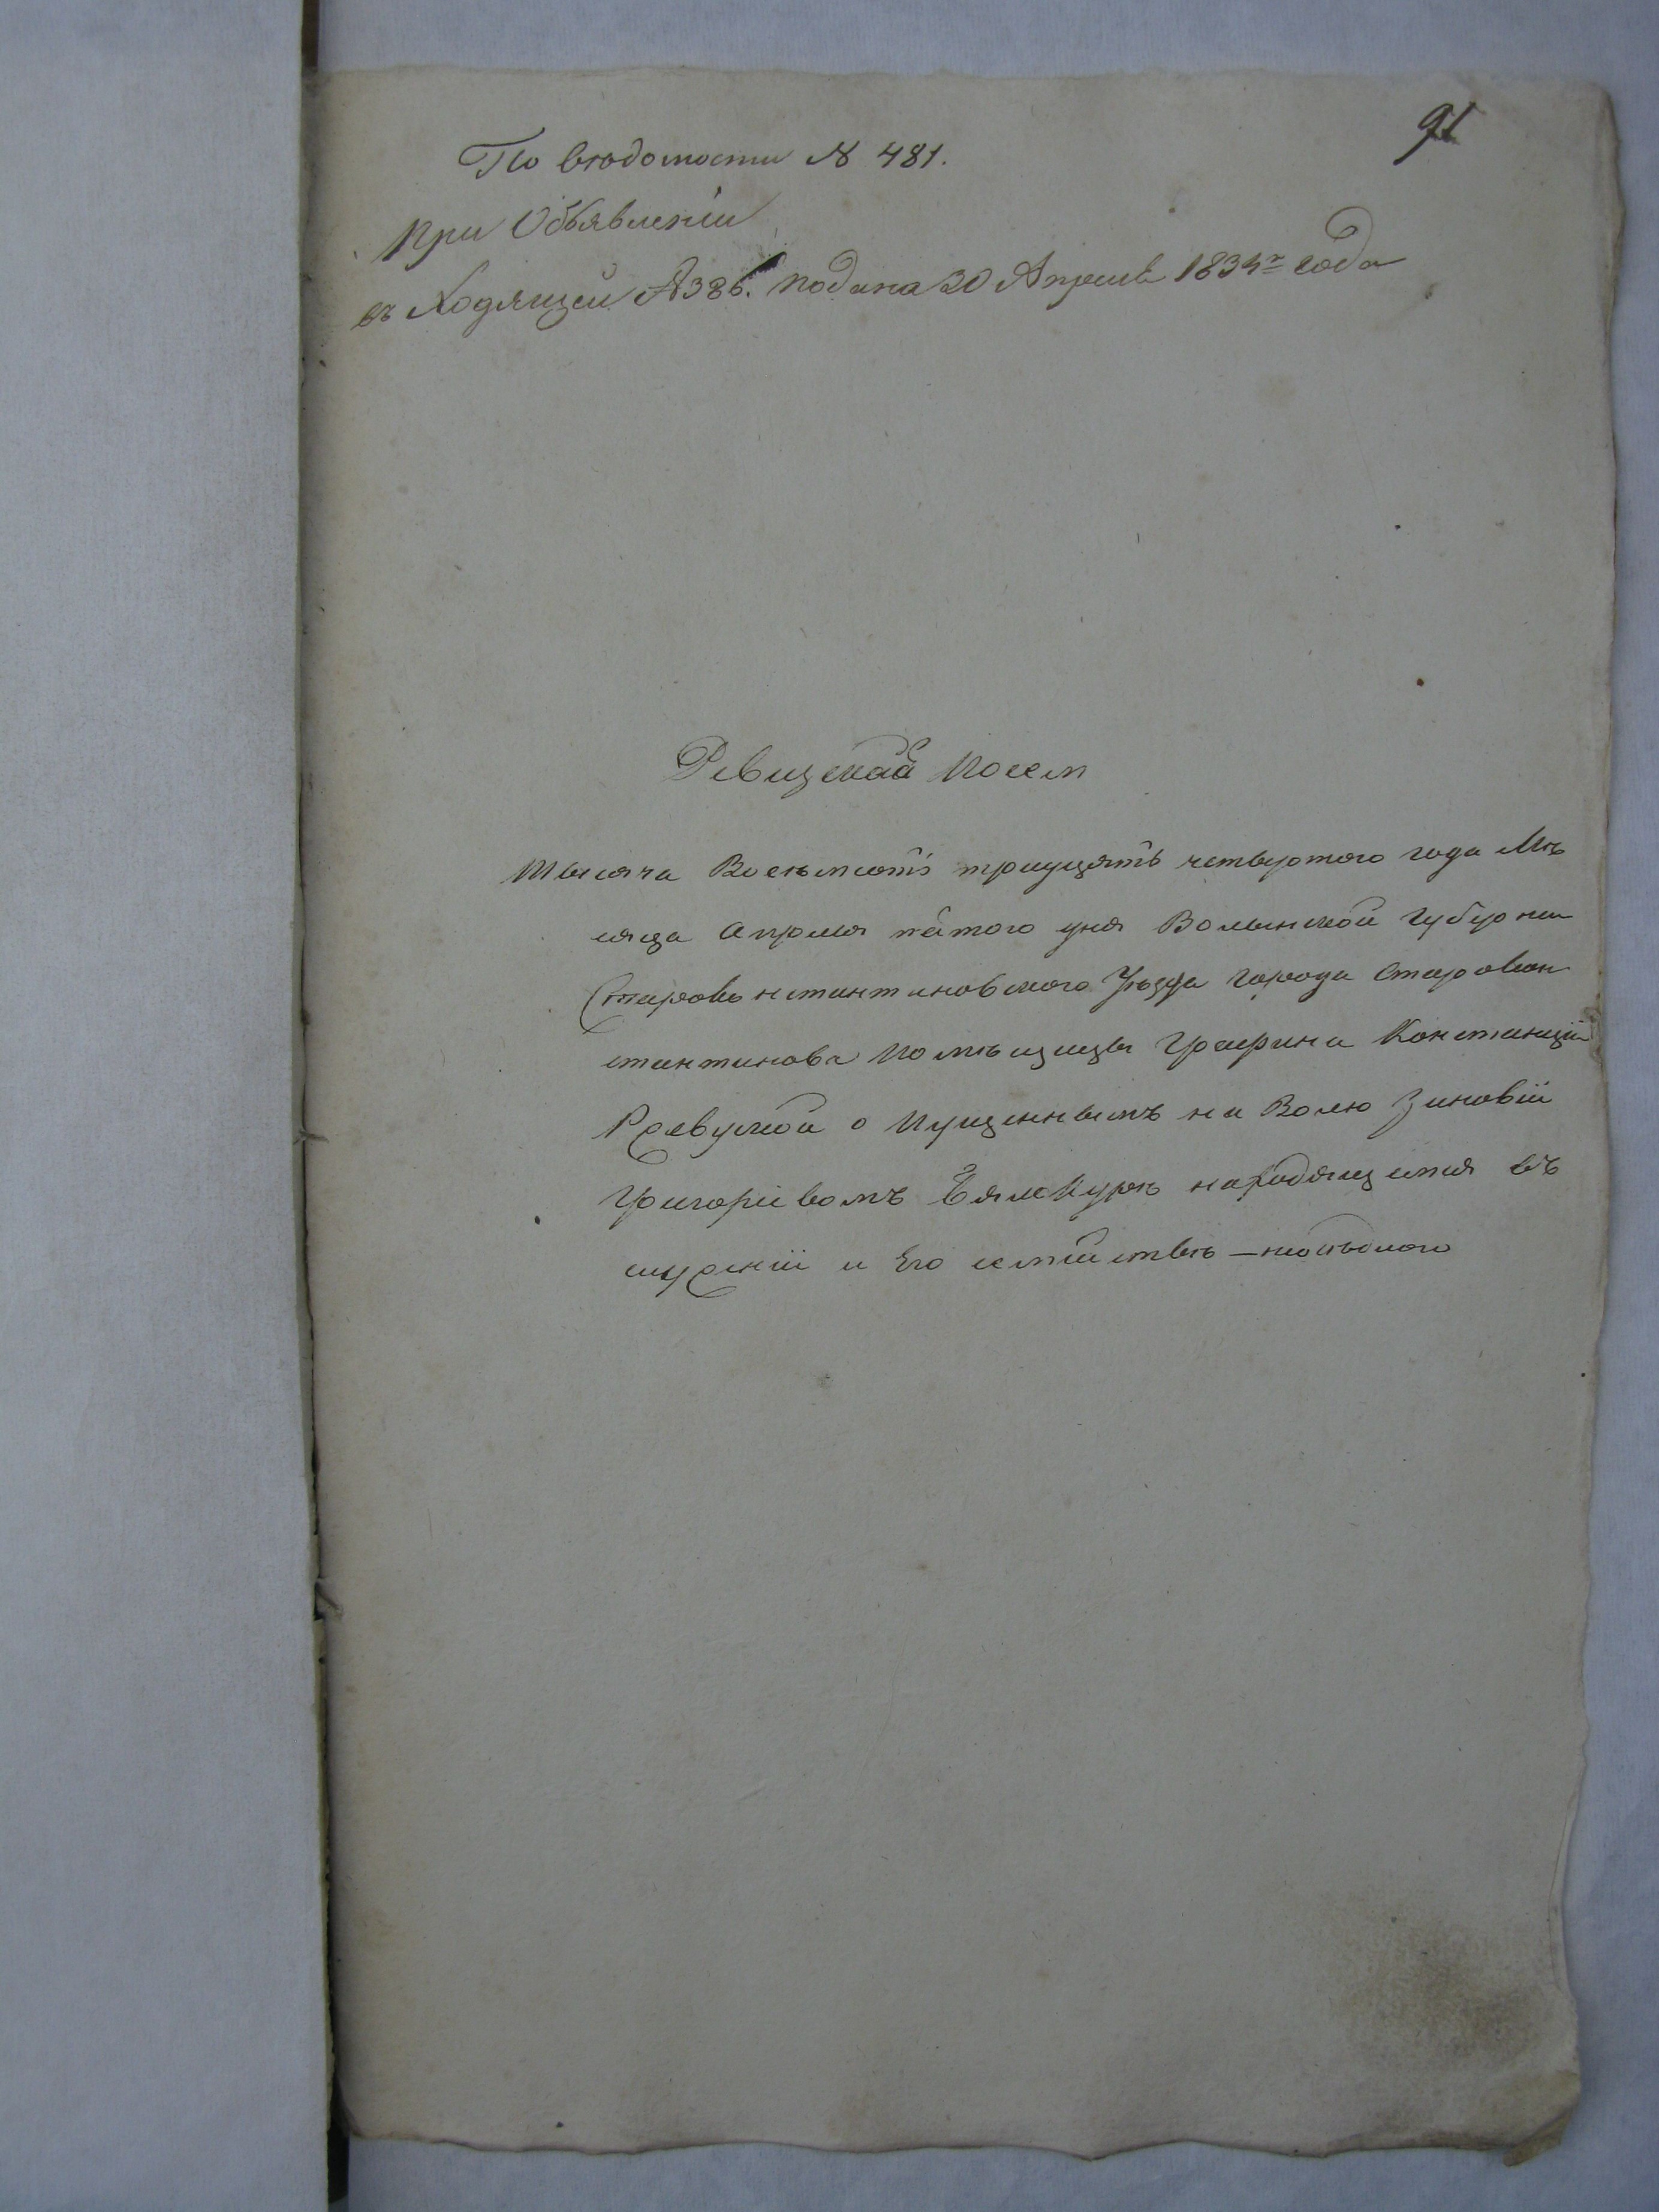 91
По вѣдомости № 481.
При Объявленіи
въ ходящей №386. подана 20 Апреля 1834го года
Ревизская
Тысяча Восемьсотъ трицять четвертого года Мѣ
сяца Апреля пятого дня Волынской Губернии
Староконстантиновского Уѣзда города Старокон
стантинова помѣщицы Графини Констанции
Ревуской о пущенныхъ на Волю Зиновіи
Григоріевомъ находящемся въ
и Его семействѣ